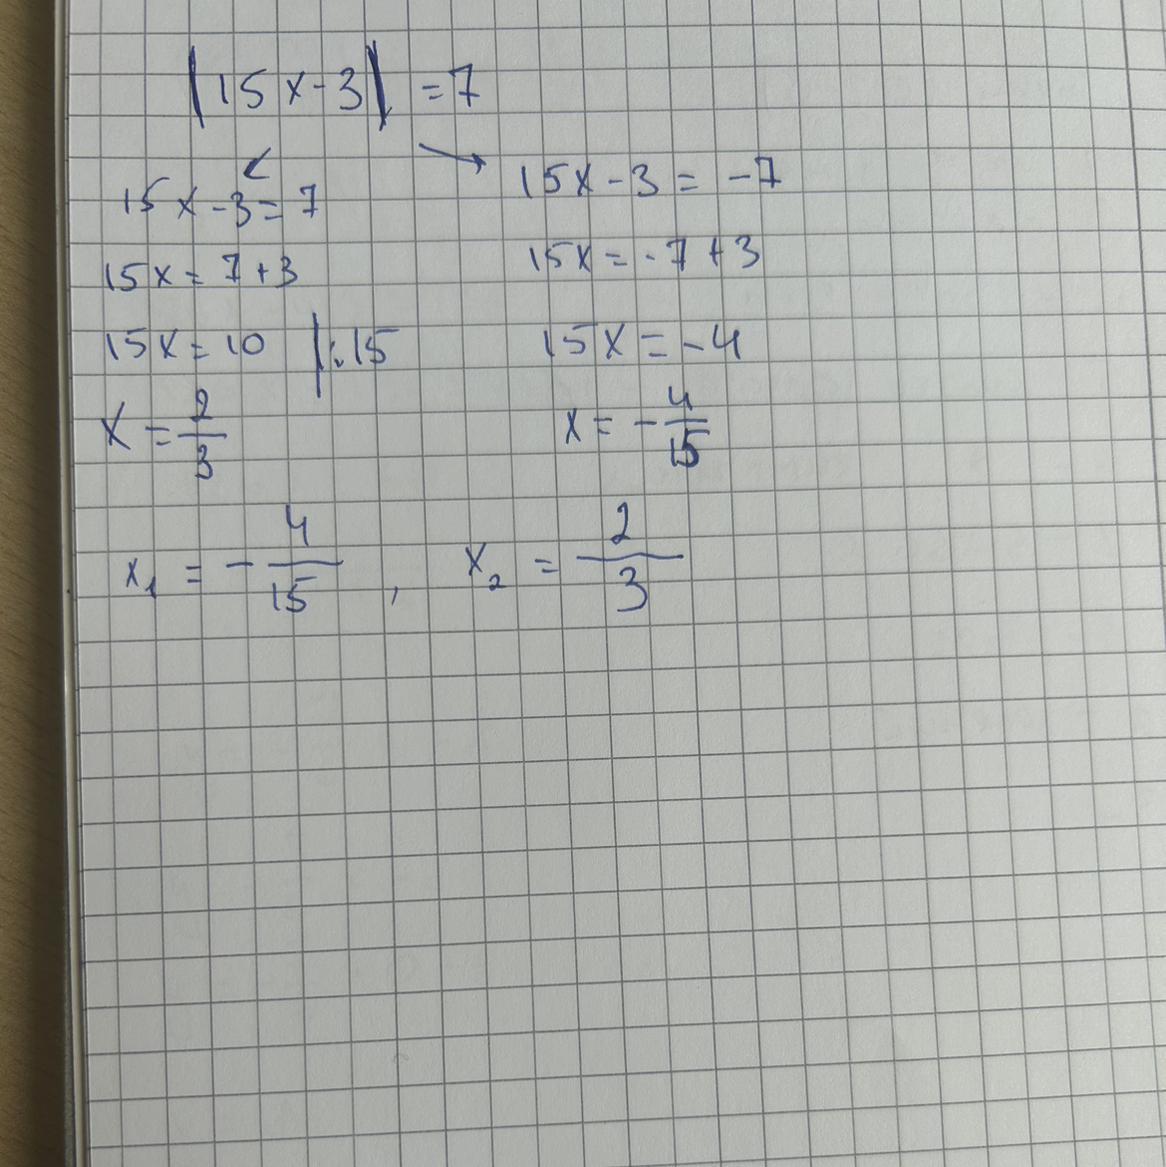 |15x-3| = 7
15x-3=7
15x = 7+3
15x = 10 |:15
x = 2/3
15x-3 = -7
15x = -7+3
15x = -4
x = -4/15
x₁ = -4/15 , x₂ = 2/3